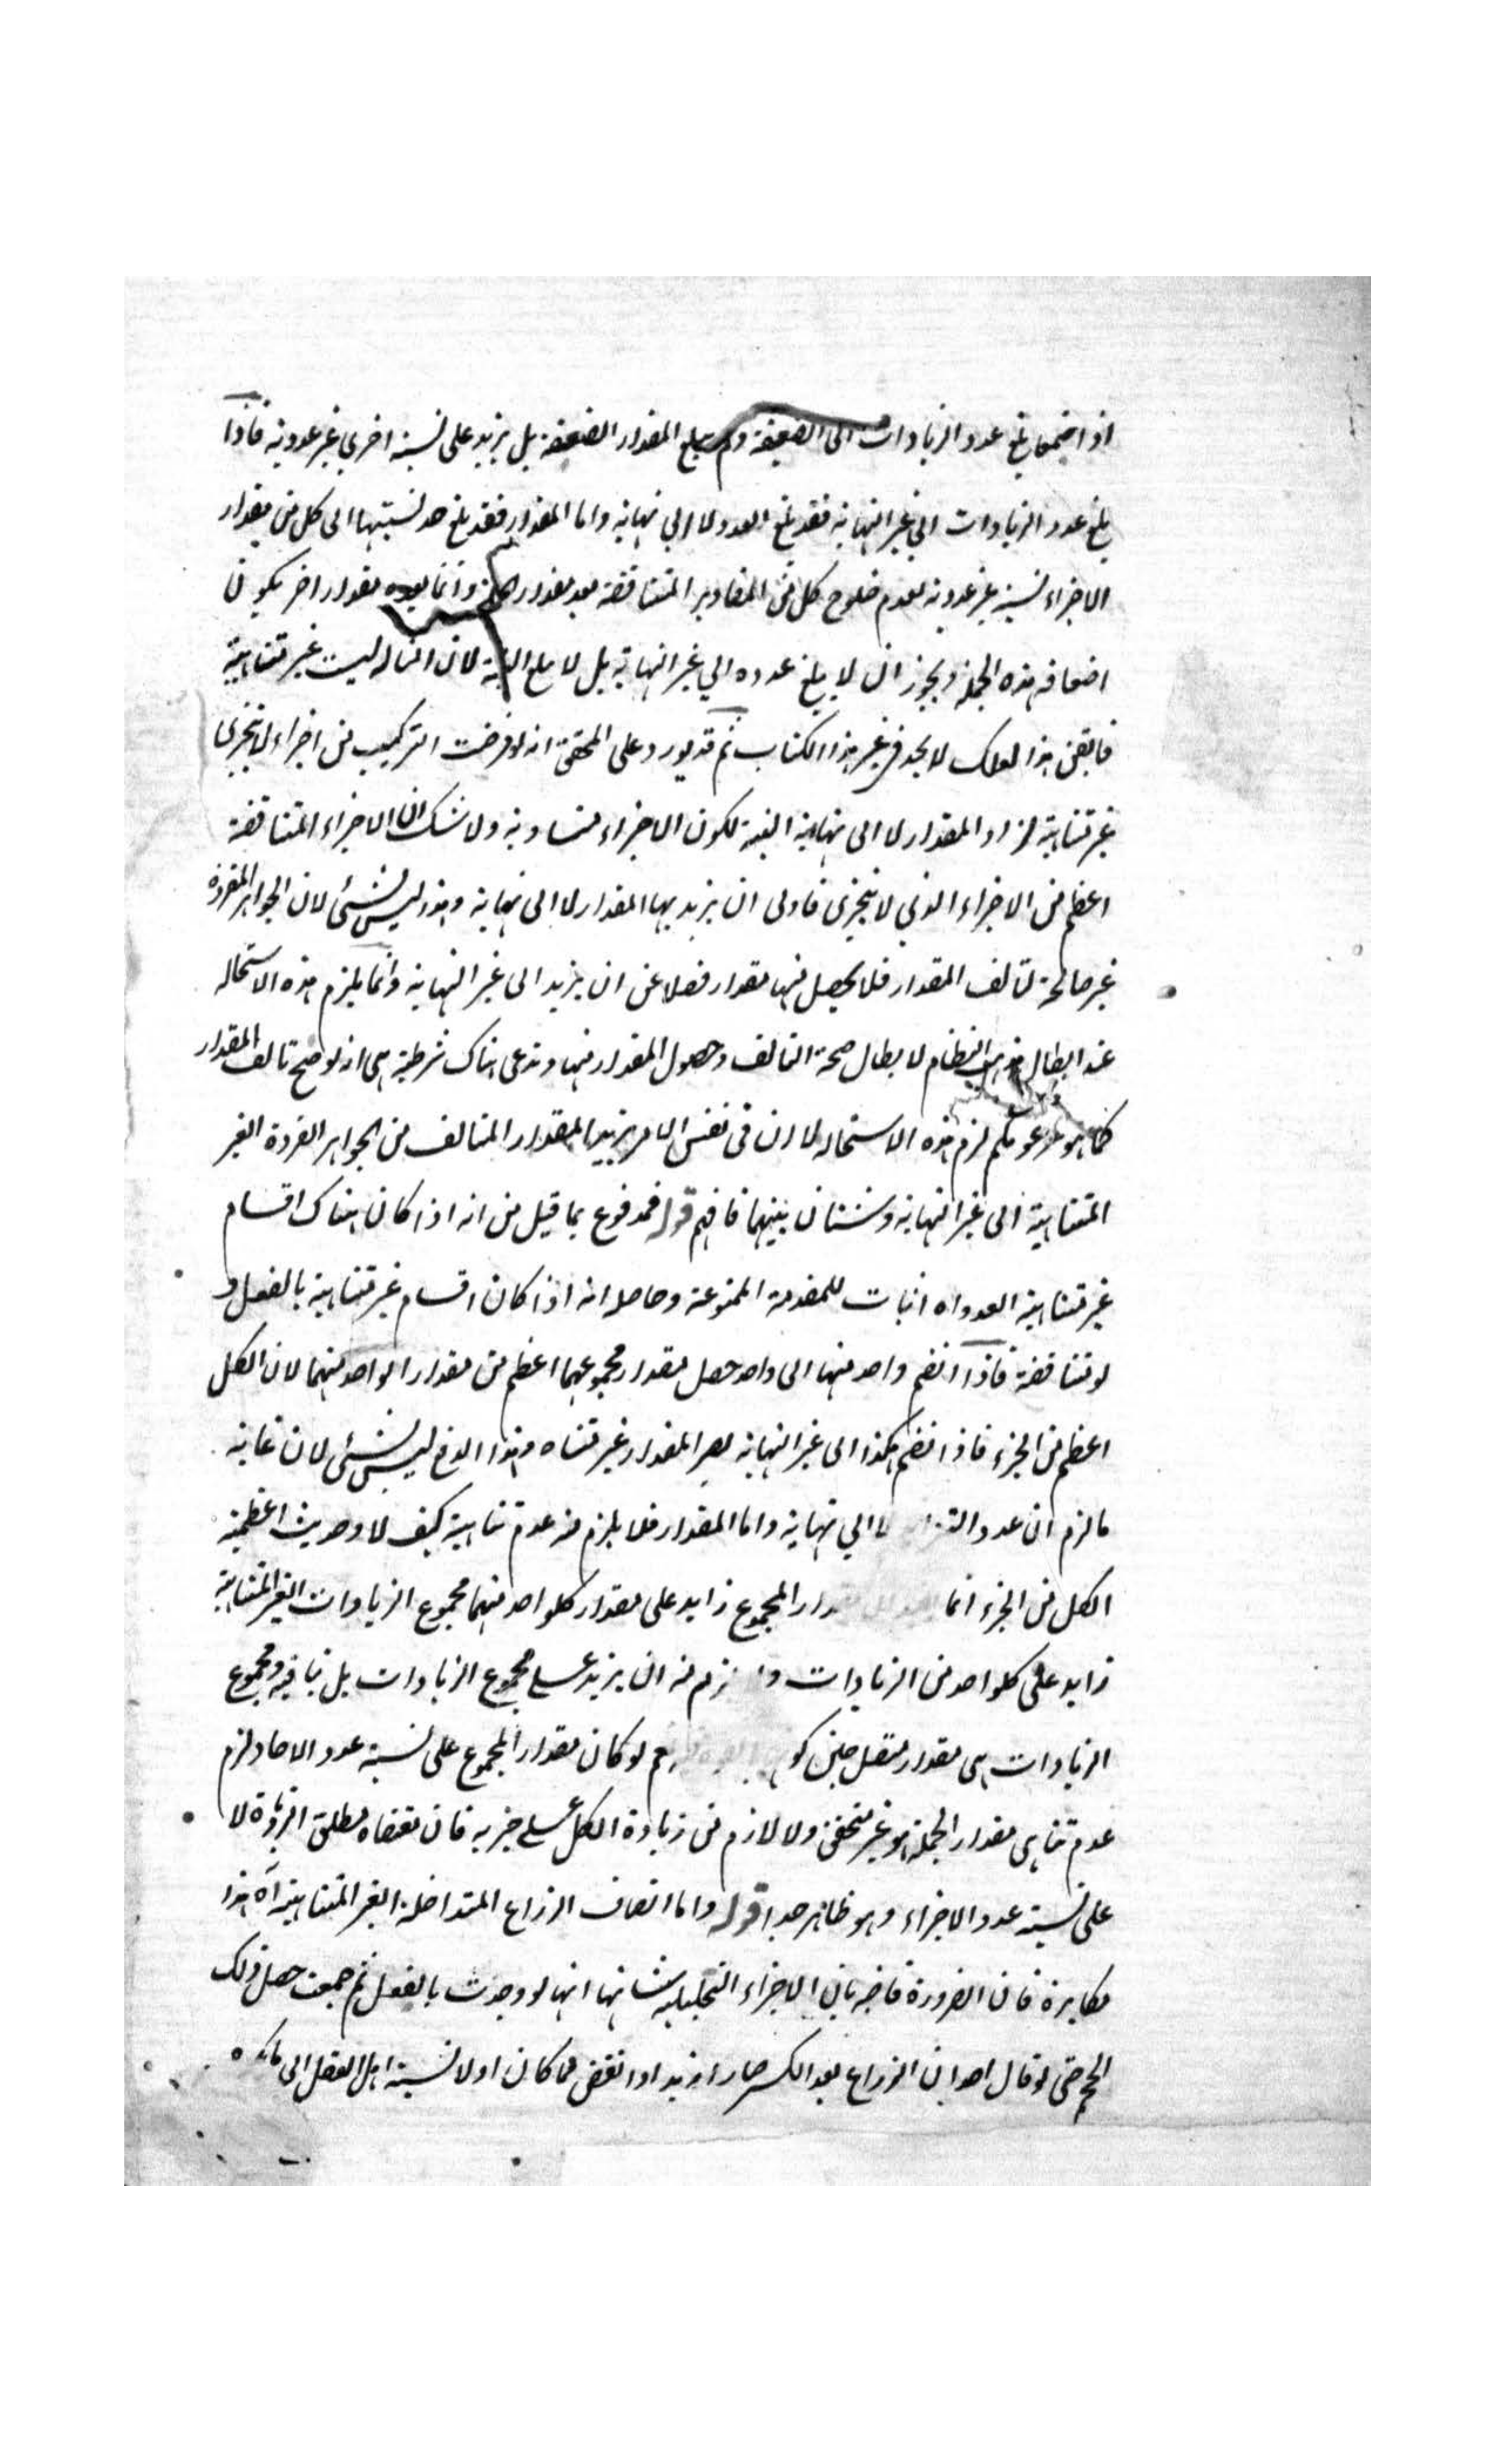 اذ اجتمعا بلغ عدد الزيادات الى الضعيفة ولم يبلغ المقدار الضعيفة بل يزيد على نسبة اخرى غير عددية فاذا
بلغ عدد الزيادات الى غير النهاية فقد بلغ العدد لا الى نهاية واما المقدار فقد بلغ حد نسبتها الى كل من مقدار
الاجزاء نسبة غير عددية لعدم خلوح كل من المقادير المتناقصة بعد مقدار وانما بعده مقدار اخر يكون
اضعافه هذه الجملة ويجوز ان لا يبلغ عدده الى غير النهاية بل لا يبلغ البتة لان ليست غير متناهية
فايقن هذا لعلك لا تجد في غير هذا الكتاب ثم قد يورد على المحقق انه لو فرضت التركيب من اجزاء لا يتجزى
غير متناهية لزاد المقدار لا الى نهاية البتة لكون الاجزاء متساوية ولا شك ان الاجزاء المتناقصة
اعظم من الاجزاء الذي لا يتجزى فاولى ان يزيد بها المقدار لا الى نهاية وهذا ليس بشئ لان الجواهر المفردة
غير صالحة لتالف المقدار فلا يحصل منها مقدار فضلا عن ان يزيد الى غير النهاية وانما يلزم هذه الاستحالة
عند ابطال مذهب النظام لا بطال صحة التالف وحصول المقدار منها وندعى هناك شرطية هى انه لو صح تالف المقدار
كما هو مزعومكم لزم هذه الاستحالة لا ان فى نفس الامر يزيد المقدار المتالف من الجواهر الفردة الغير
المتناهية الى غير النهاية وشتان بينهما فافهم قوله فمدفوع بما قيل من انه اذا كان هناك اقسام
غير متناهية العدد اه اثبات للمقدمة الممنوعة وحاصله انه اذا كان اقسام غير متناهية بالفعل و
لو متناقصة فاذا انضم واحد منها الى واحد حصل مقدار مجموعهما اعظم من مقدار الواحد منهما لان الكل
اعظم من الجزء فاذا انضم هكذا الى غير النهاية يصير المقدار غير متناه وهذا الدفع ليس بشئ لان غاية
ما لزم ان عدد لا الى نهاية واما المقدار فلا يلزم منه عدم تناهيه كيف لا وحديث اعظمية
الكل من الجزء انما مقدار المجموع زايد على مقدار كلواحد منهما مجموع الزيادات الغير المتناهية
زايد على كلواحد من الزيادات ولا يلزم منه ان يزيد على مجموع الزيادات بل ينافيه ومجموع
الزيادات هى مقدار متصل حين نعم لو كان مقدار المجموع على نسبة عدد الاحاد لزم
عدم تناهى مقدار الجملة وهو غير متحقق ولا لازم من زيادة الكل على جزيه فان مقتضاه مطلق الزيادة لا
على نسبة عدد الاجزاء وهو ظاهر جدا قوله واما اتصاف الذراع المتداخلة الغير المتناهية اه هذا
مكابرة فان الضرورة قاضية بان الاجزاء التحليلية شانها انها لو وجدت بالفعل ثم جمعت حصل ذلك
الحجم حتى لو قال احد ان الذراع بعد الكسر صار ازيد او انقص مما كان اولا نسبة اهل العقل الى